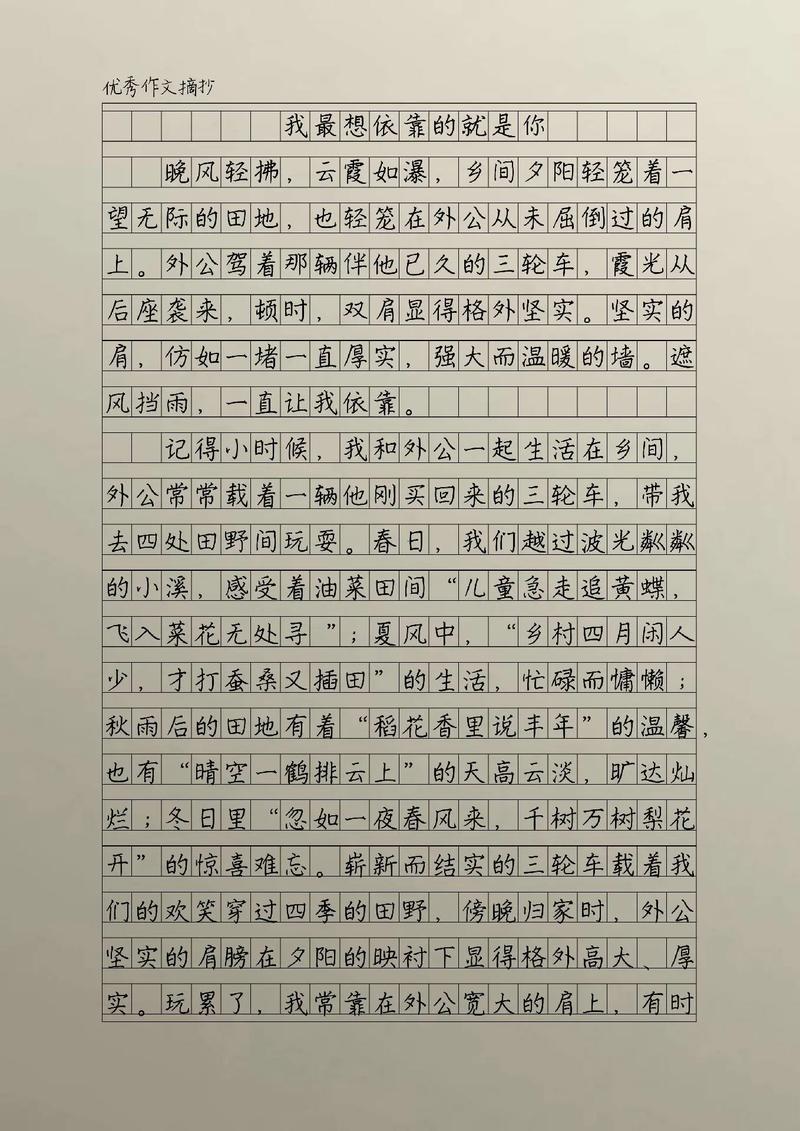 优秀作文摘抄
我最想依靠的就是你
晚风轻拂，云霞如瀑，乡间夕阳轻笼着一
望无际的田地，也轻笼在外公从未屈倒过的肩
上。外公驾着那辆伴他已久的三轮车，霞光从
后座袭来，顿时，双肩显得格外坚实。坚实的
肩，仿如一堵一直厚实，强大而温暖的墙。遮
风挡雨，一直让我依靠。
记得小时候，我和外公一起生活在乡间，
外公常常载着一辆他刚买回来的三轮车，带我
去四处田野间玩耍。春日，我们越过波光粼粼
的小溪，感受着油菜田间“儿童急走追黄蝶，
飞入菜花无处寻”；夏风中，“乡村四月闲人
少，才打蚕桑又插田”的生活，忙碌而慵懒；
秋雨后的田地有着“稻花香里说丰年”的温馨，
也有“晴空一鹤排云上”的天高云淡，旷达灿
烂；冬日里“忽如一夜春风来，千树万树梨花
开”的惊喜难忘。崭新而结实的三轮车载着我
们的欢笑穿过四季的田野，傍晚归家时，外公
坚实的肩膀在夕阳的映衬下显得格外高大、厚
实。玩累了，我常靠在外公宽大的肩上，有时